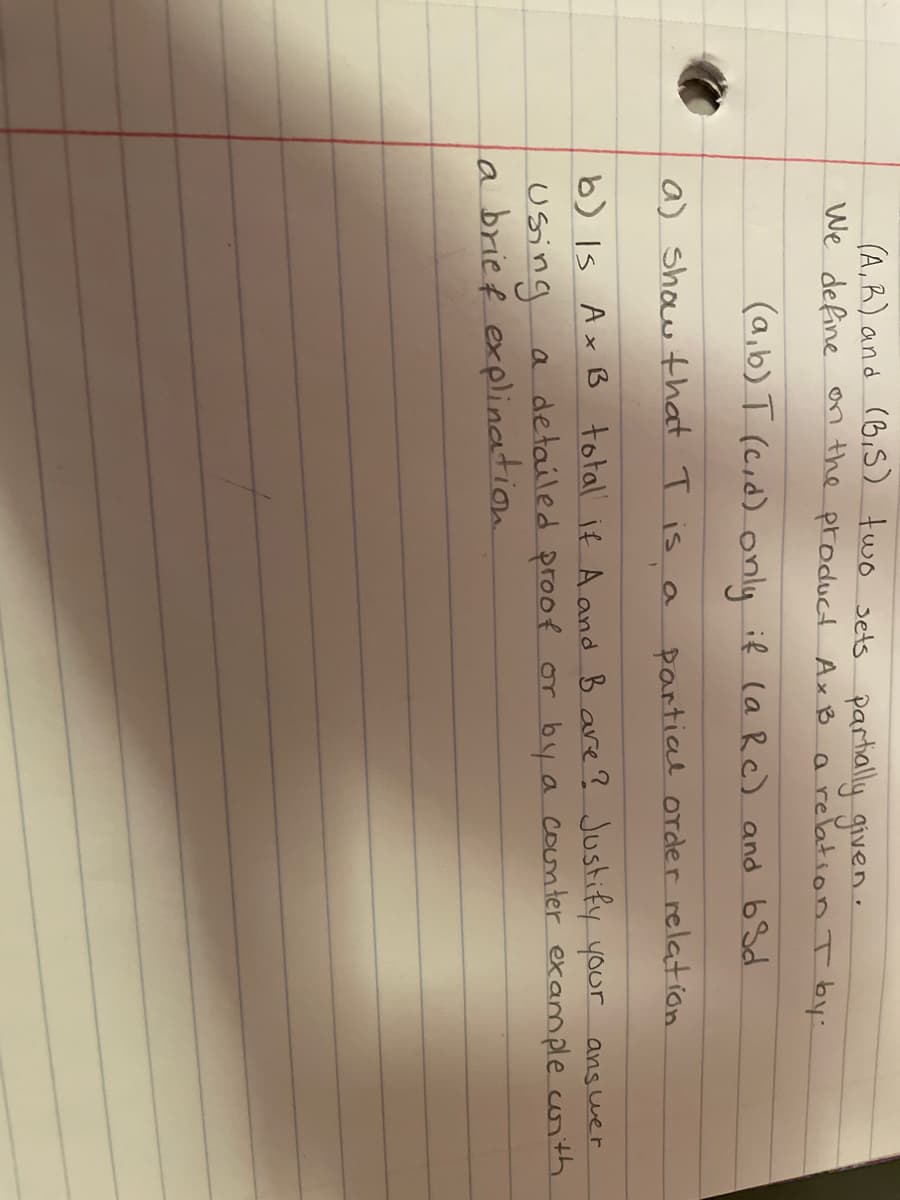 (A,R) and (B,S) two sets partially given.
We define on the product A×B a relation T by:
(a,b) T (c,d) only if (a R c) and b S d
a) show that T is a partial order relation
b) Is A×B total if A and B are? Justify your answer
using a detailed proof or by a counter example with
a brief explination